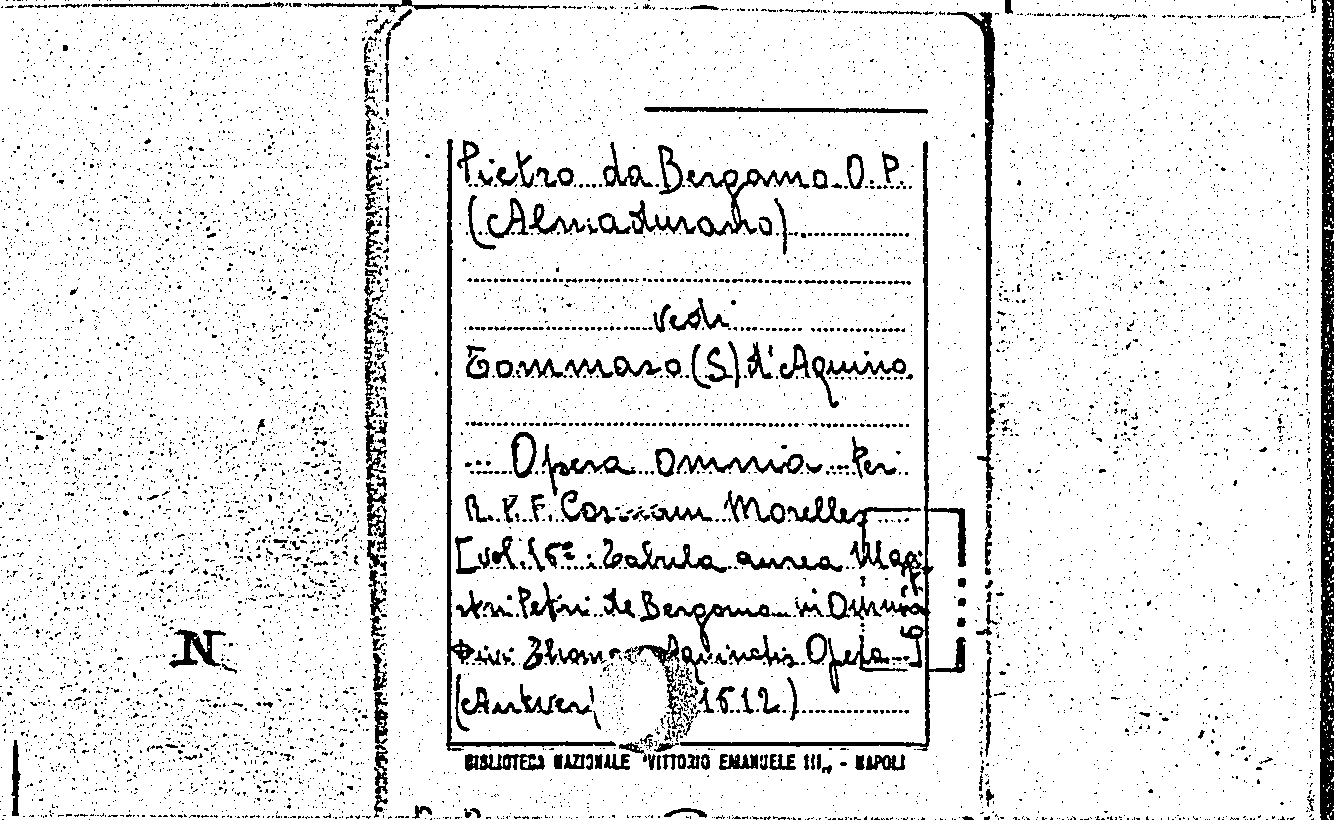 Pietro da Bergamo O. P.
(Almadurano)
vedi
Tommaso (S) d'Aquino
... Opera omnia ... Per
R. P. F. Cosmam Morelles
[vol. 16º: Tabula aurea Magi-
stri Petri de Bergomo in Omnia
Divi Thomae Aquinatis Opera ...]
(Antver 1612)
BIBLIOTECA NAZIONALE "VITTORIO EMANUELE III„ - NAPOLI
N